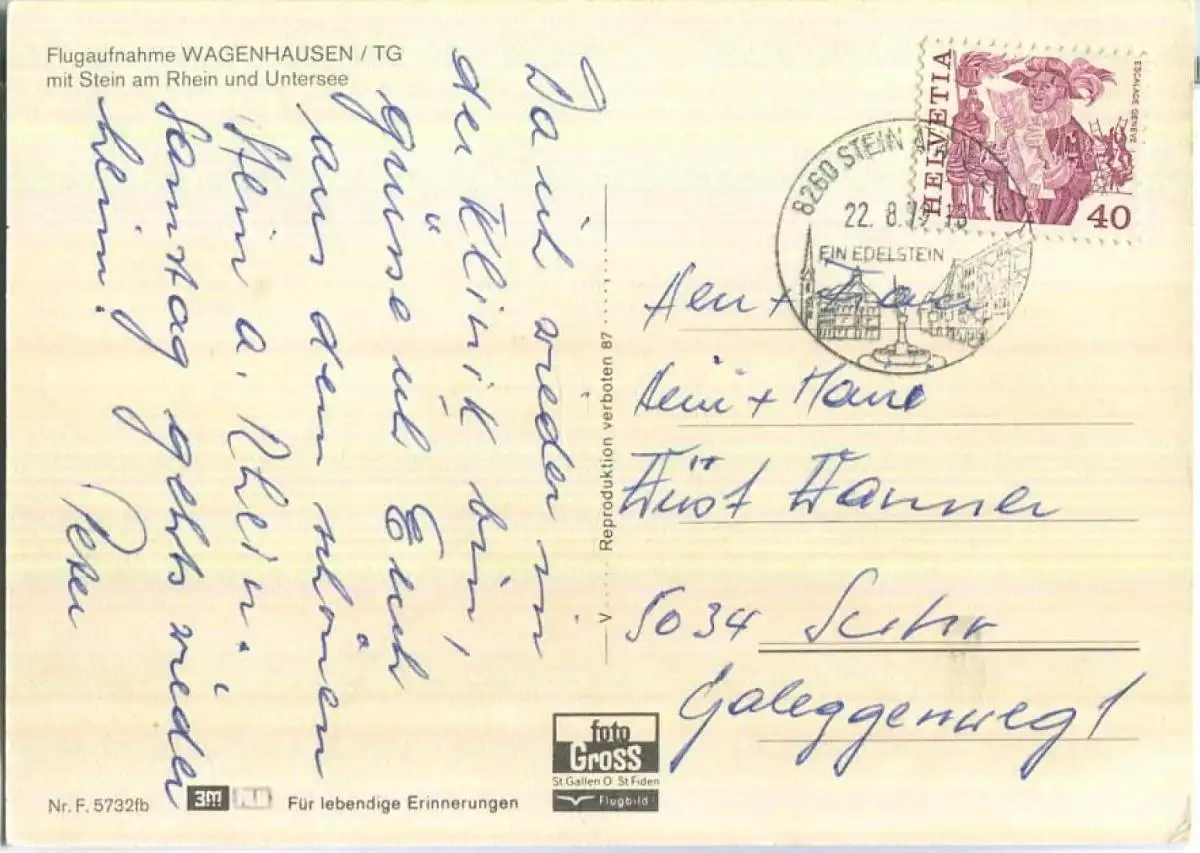 Flugaufnahme WAGENHAUSEN / TG
mit Stein am Rhein und Untersee
Da ich wieder in
der Klinik bin,
grüsse ich Euch
aus dem schönen
Stein a. Rhein.
Samstag gehts wieder
heim!
Peter
V Reproduktion verboten 87
HELVETIA
ESCALADE GENÈVE
40
8260 STEIN A
22. 8.
EIN EDELSTEIN
Herr + Frau
Heini +
Wüst Wanner
5034 Suhr
Galeggenweg 1
foto
Gross
St Gallen O St Fiden
Flugbild
Nr. F. 5732fb
3M
Für lebendige Erinnerungen